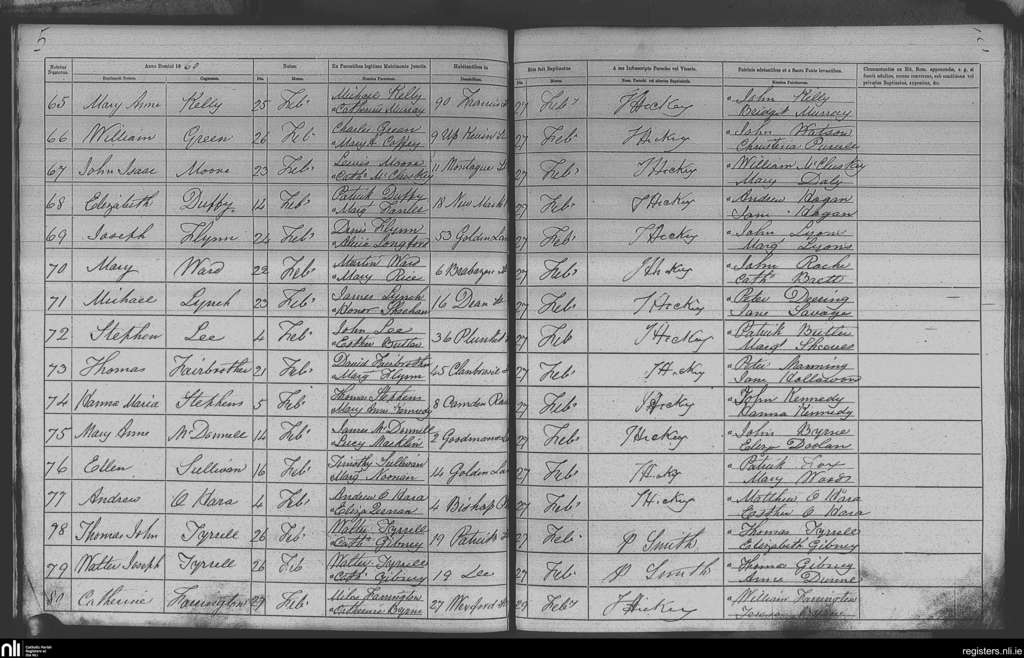 5
Numerus Numerus.
Anno Domini 1860
Natus
Ex Parentibus legitimo Matrimonio junctis.
Habitantibus in
Baptizati Nomen.
Cognomen.
Die.
Mense.
Nomina Parentum.
Domicilium.
Die.
Rite fuit Baptizatus
Mense.
A me Infrascripto Parocho vel Vicario.
Nom. Parochi vel alterius Baptizantis.
Patrinis adstantibus et a Sancto Fonte levantibus.
Nomina Patrinorum.
65 Mary Anne Kelly 25 Feb Michael Kelly 90 Francis St 27 Feby J Hickey John Kelly
Catherine Murray Bridget Murray
66 William Green 26 Feb Charles Green 9 Up Kevin St 27 Feb J Hickey John Watson
Mary A Caffery Christina Purcell
67 John Isaac Moore 23 Feb Lewis Moore 11 Montague St 27 Feb J Hickey William McCluskey
Cath McCluskey Mary Daly
68 Elizabeth Duffy 14 Feb Patrick Duffy 18 New Market 27 Feb J Hickey Andrew Hogan
Margt Jane Hogan
69 Joseph Flynn 24 Feb Denis Flynn 53 Golden Lane 27 Feb J Hickey John Lyons
Alicia Longford Margt Lyons
70 Mary Ward 22 Feb Martin Ward 6 Brabazon St 27 Feb J Hickey John Roche
Mary Rice Cath Brett
71 Michael Lynch 23 Feb James Lynch 16 Dean St 27 Feb J Hickey Peter
Honor Sheehan Jane Savage
72 Stephen Lee 4 Feb John Lee 36 Plunket 27 Feb J Hickey Patrick Butler
Esther Butler Margt
73 Thomas Fairbrother 21 Feb David Fairbrother 45 Clanbrassil 27 Feb J Hickey Peter Manning
Margt Flynn Jane
74 Hanna Maria Stephens 5 Feb Thomas Stephens 8 Camden Row 27 Feb J Hickey John Kennedy
Mary Anne Kennedy Hanna Kennedy
75 Mary Anne McDonnell 14 Feb James McDonnell 2 Goodmans 27 Feb J Hickey John Byrne
Lucy Macklin Eliza Doolan
76 Ellen Sullivan 16 Feb Timothy Sullivan 14 Golden Lane 27 Feb J Hickey Patrick Fox
Margt Noonan Mary Woods
77 Andrew O Hara 4 Feb Andrew O Hara 4 Bishop 27 Feb J Hickey Matthew O Hara
Eliza Esther O Hara
98 Thomas John Tyrrell 26 Feb Walter Tyrrell 19 Patrick St 27 Feb P Smith Thomas Tyrrell
Cath Gibney Elizabeth Gibney
79 Walter Joseph Tyrrell 26 Feb Walter Tyrrell 19 Lee 27 Feb P Smith Thomas Gibney
Cath Gibney Anne Dunne
80 Catherine Farrington 27 Feb Miles Farrington 27 Wexford St 29 Feby J Hickey William Farrington
Catherine Byrne
nli Catholic Parish Registers at the NLI
registers.nli.ie